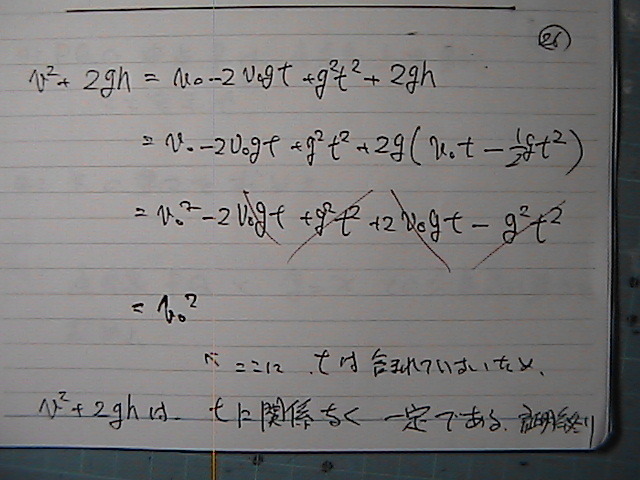 26
v² + 2gh = v₀ - 2v₀gt + g²t² + 2gh
= v₀ - 2v₀gt + g²t² + 2g(v₀t - ½gt²)
= v₀² - 2v₀gt + g²t² + 2v₀gt - g²t²
= v₀²
↑ ここに、tは含まれていないため、
v² + 2ghは、tに関係なく 一定である。証明終り